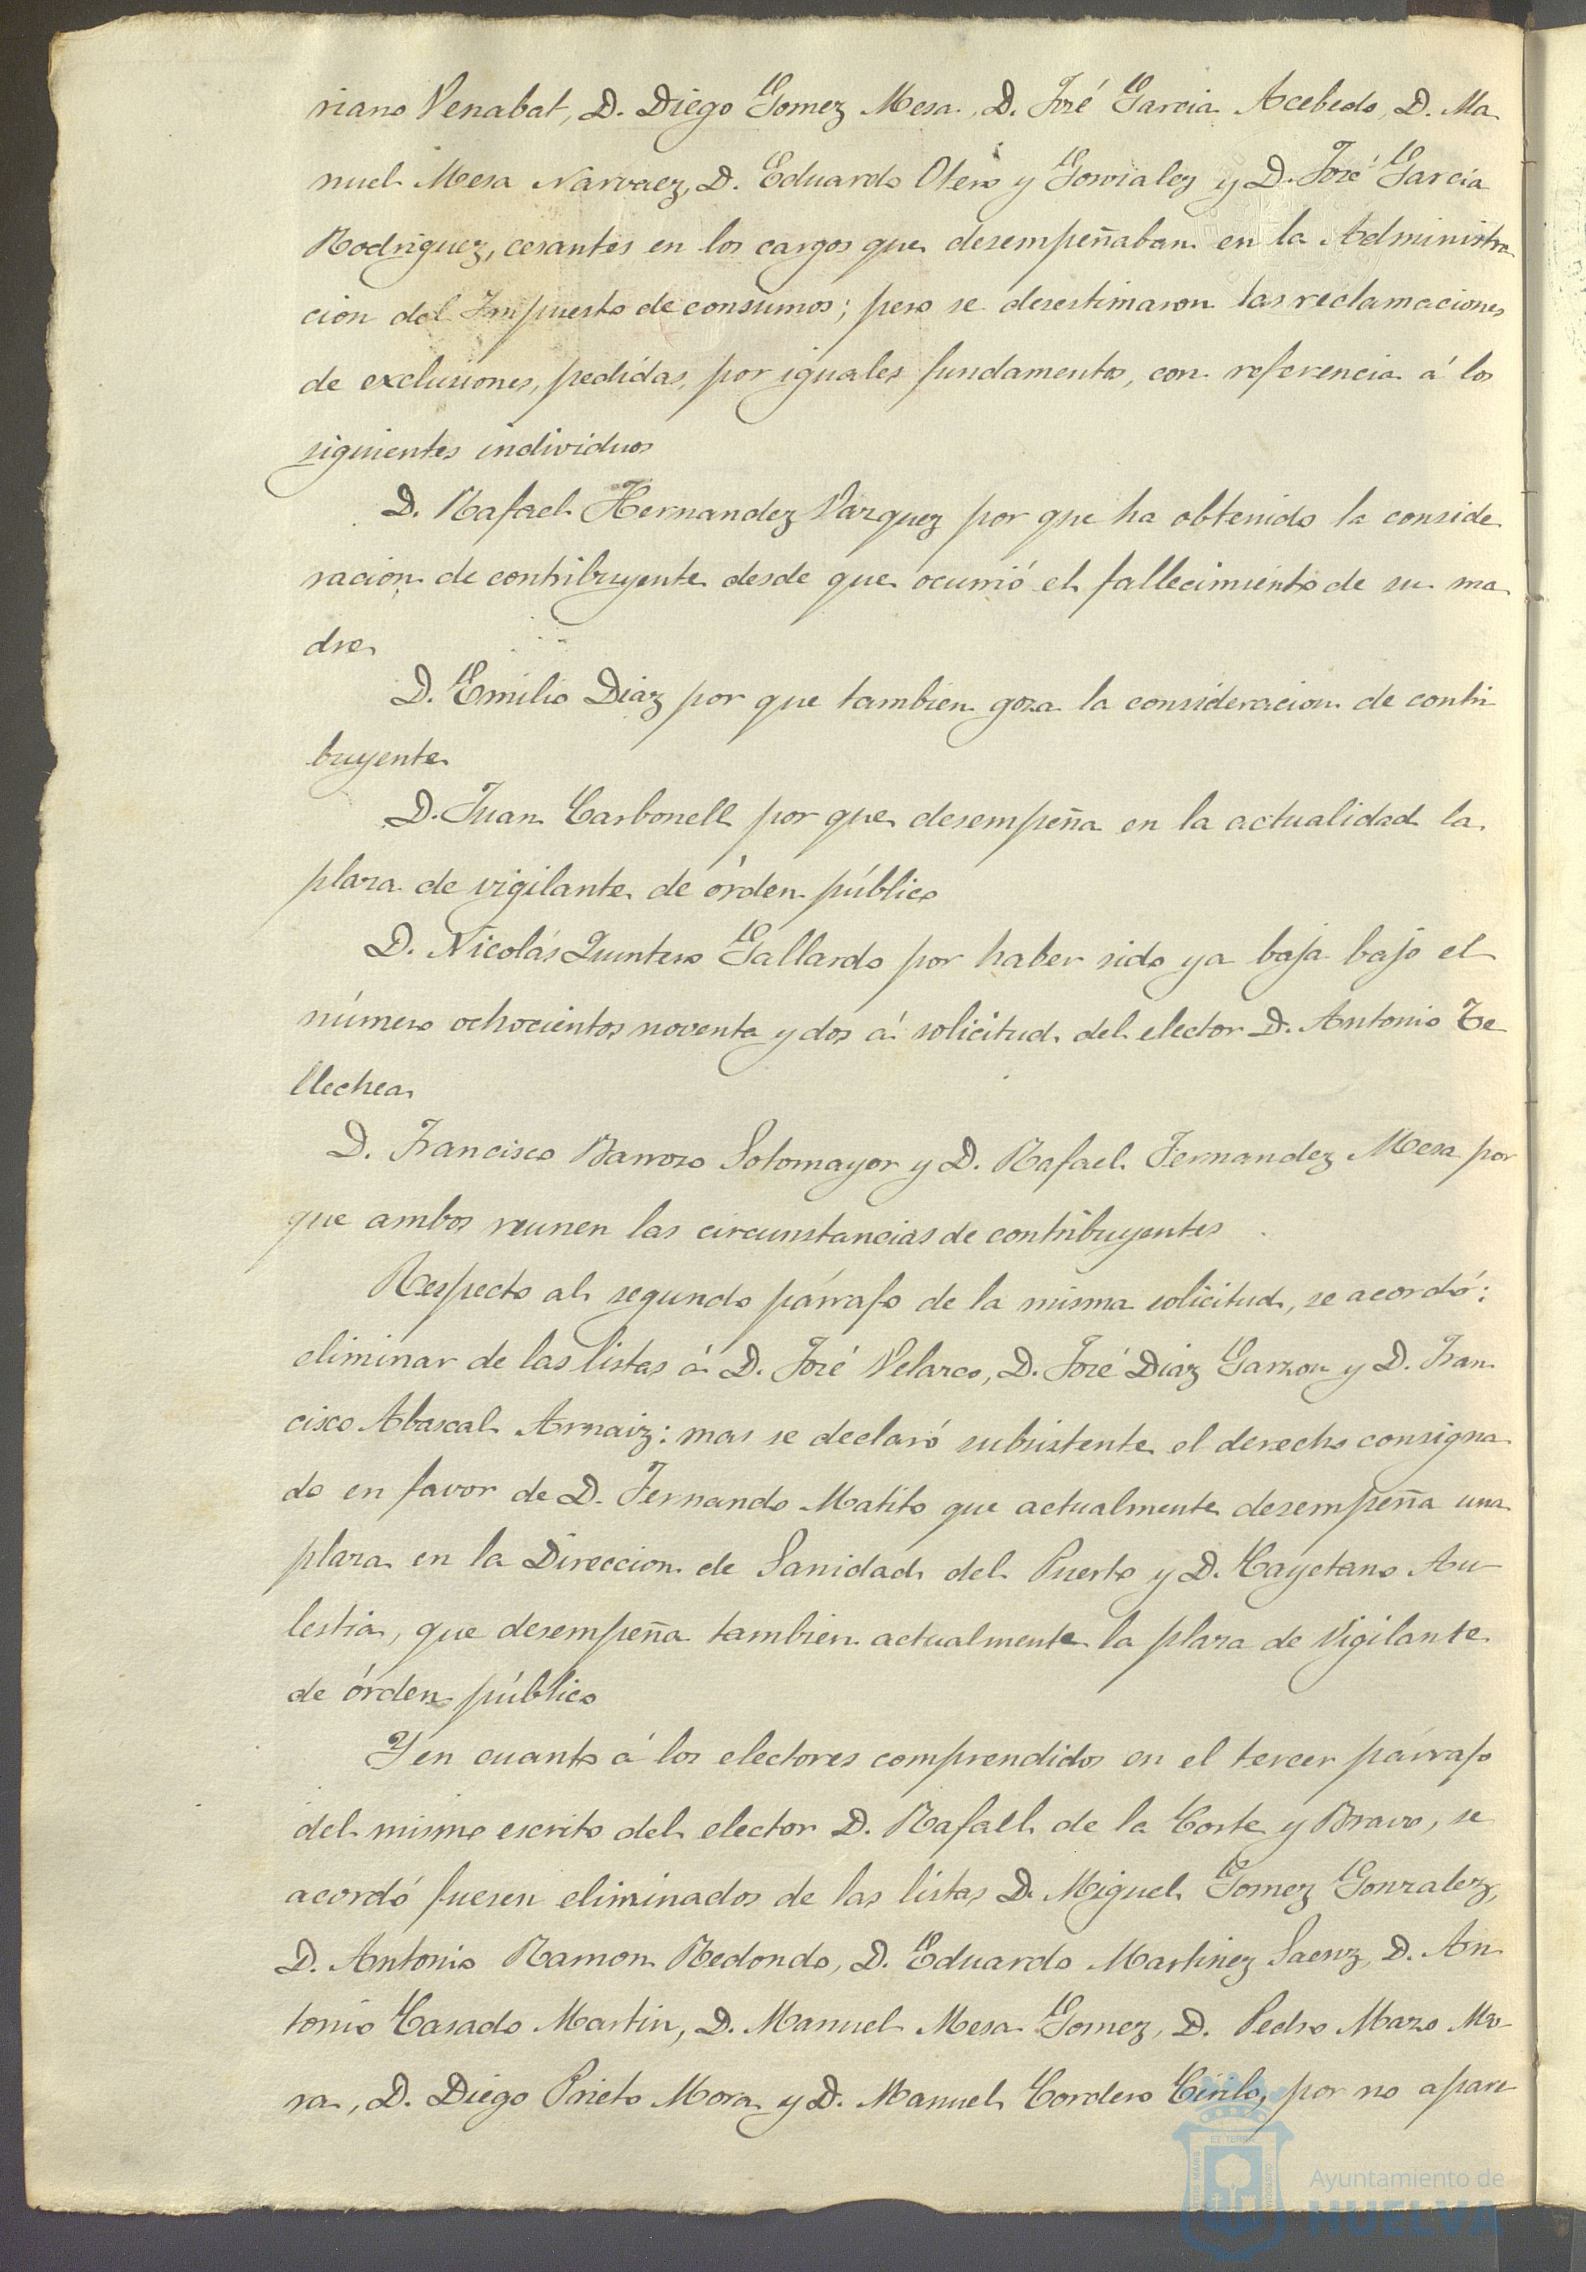 riano Venabat, D. Diego Gomez Mesa, D. José Garcia Acebedo, D. Ma
nuel Mesa Narvaez, D. Eduardo Otero y Gonzalez y D. José Garcia
Rodriguez, cesantes en los cargos que desempeñaban en la Administra
cion del Impuesto de consumos; pero se desestimaron las reclamaciones
de exclusiones, pedidas, por iguales fundamentos, con referencia á los
siguientes individuos
D. Rafael Hernandez Vazquez por que ha obtenido la conside
racion de contribuyente desde que ocurrió el fallecimiento de su ma
dre
D. Emilio Diaz por que tambien goza la consideracion de contri
buyente
D. Juan Carbonell por que desempeña en la actualidad la
plaza de vigilante de órden público
D. Nicolás Quintero Gallardo por haber sido ya baja bajo el
número ochocientos noventa y dos á solicitud del elector D. Antonio Te
llechea
D. Francisco Barroso Sotomayor y D. Rafael Fernandez Mesa por
que ambos reunen las circunstancias de contribuyentes
Respecto al segundo párrafo de la misma solicitud, se acordó:
eliminar de las listas á D. José Velazco, D. José Diaz Garzon y D. Fran
cisco Abascal Arnaiz: mas se declaró subsistente el derecho consigna
do en favor de D. Fernando Matito que actualmente desempeña una
plaza en la Direccion de Sanidad del Puerto y D. Cayetano Au
lestia, que desempeña tambien actualmente la plaza de Vigilante
de órden público
Y en cuanto á los electores comprendidos en el tercer párrafo
del mismo escrito del elector D. Rafael de la Corte y Bravo, se
acordó fuesen eliminados de las listas D. Miguel Gomez Gonzalez,
D. Antonio Ramon Redondo, D. Eduardo Martinez Saenz, D. An
tonio Casado Martin, D. Manuel Mesa Gomez, D. Pedro Mazo Mo
ra, D. Diego Prieto Mora y D. Manuel Cordero Cirilo, por no apare
Ayuntamiento de
HUELVA